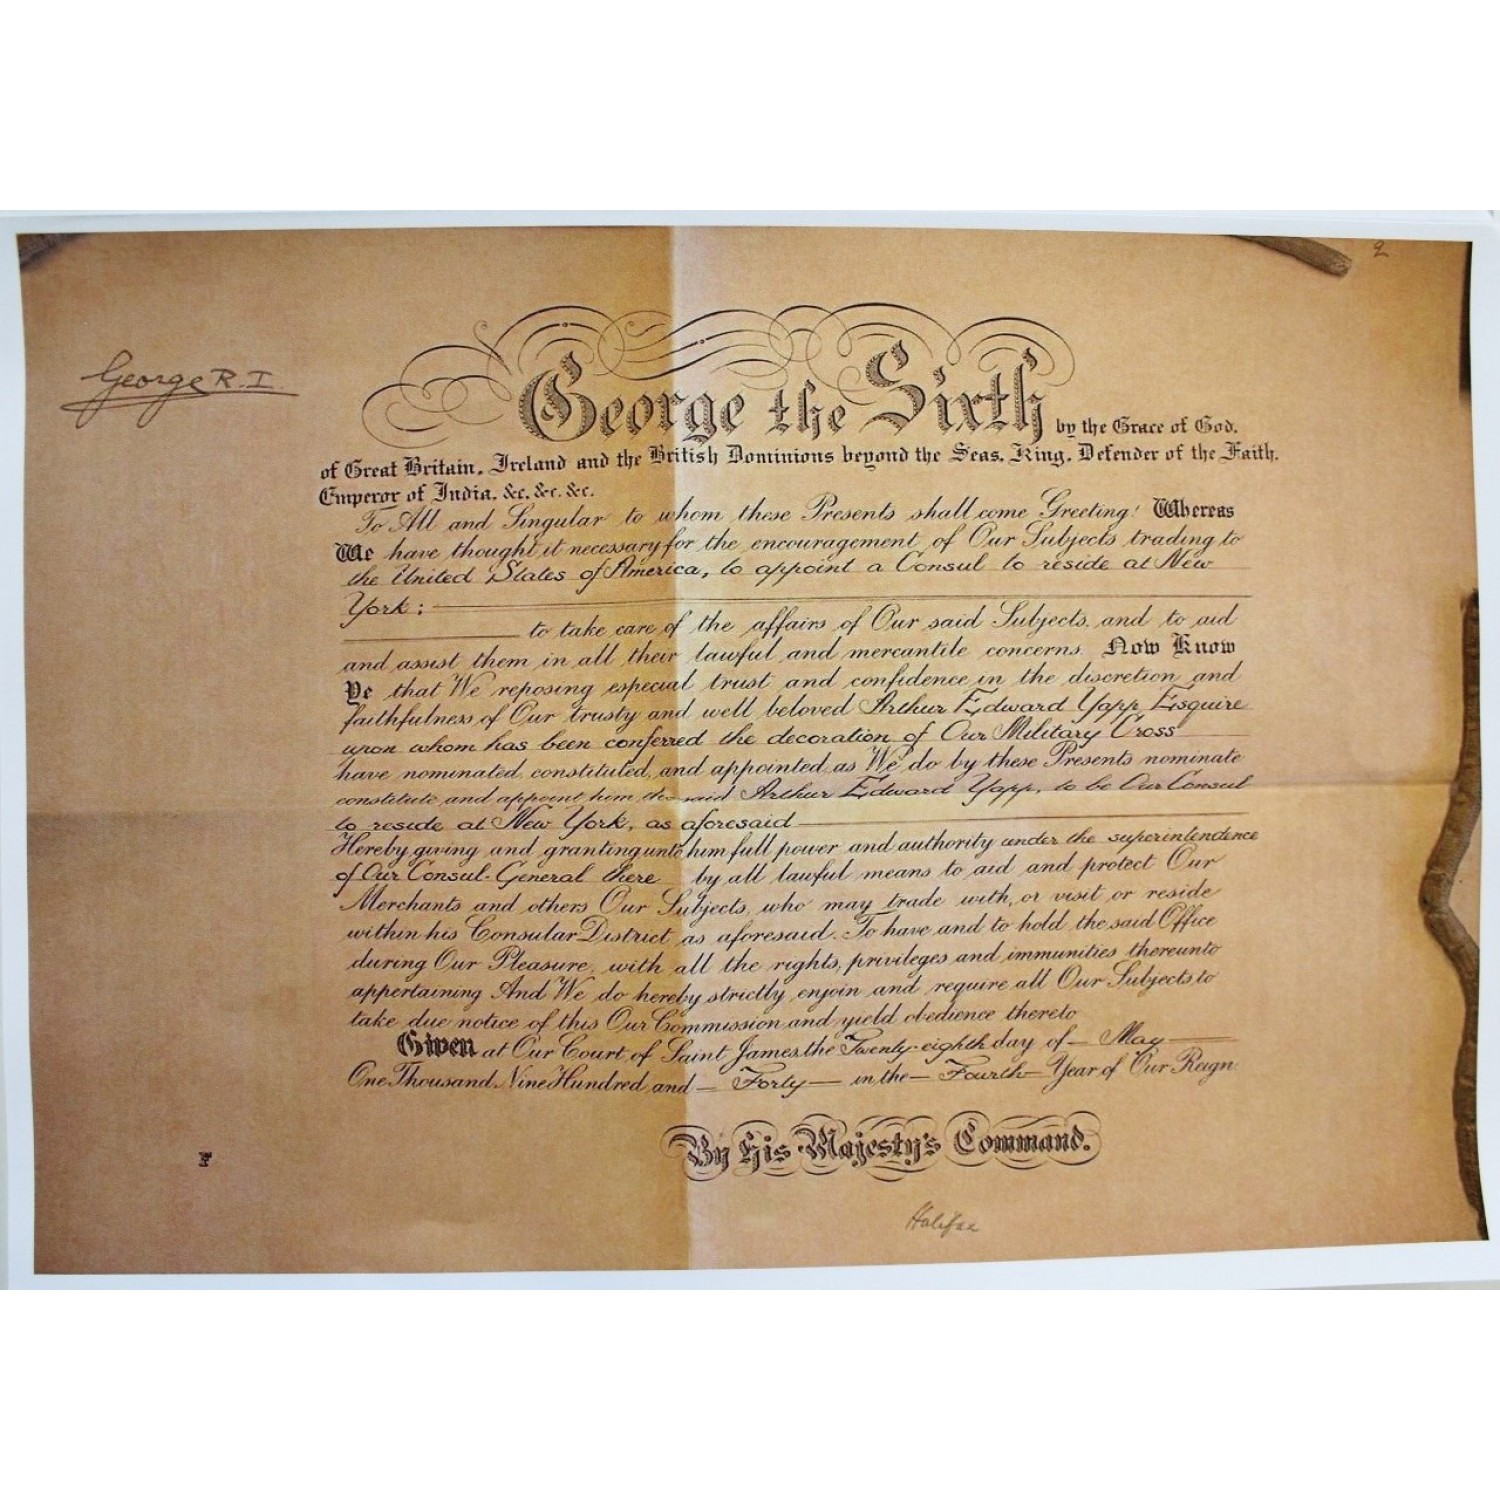 2
George R.I.
George the Sixth by the Grace of God,
of Great Britain, Ireland and the British Dominions beyond the Seas, King, Defender of the Faith,
Emperor of India, &c. &c. &c.
To All and Singular to whom these Presents shall come Greeting! Whereas
We have thought it necessary for the encouragement of Our Subjects trading to
the United States of America, to appoint a Consul to reside at New
York;
to take care of the affairs of Our said Subjects, and to aid
and assist them in all their lawful and mercantile concerns Now Know
Ye that We reposing especial trust and confidence in the discretion and
faithfulness of Our trusty and well beloved Arthur Edward Yapp, Esquire
upon whom has been conferred the decoration of Our Military Cross
have nominated, constituted, and appointed as We do by these Presents nominate
constitute and appoint him the said Arthur Edward Yapp, to be Our Consul
to reside at New York, as aforesaid
Hereby giving and granting unto him full power and authority under the superintendence
of Our Consul-General there by all lawful means to aid and protect Our
Merchants and others Our Subjects, who may trade with, or visit or reside
within his Consular District as aforesaid. To have and to hold the said Office
during Our Pleasure, with all the rights, privileges and immunities thereunto
appertaining And We do hereby strictly enjoin and require all Our Subjects to
take due notice of this Our Commission and yield obedience thereto
Given at Our Court of Saint James, the Twenty-eighth day of May
One Thousand Nine Hundred and Forty in the Fourth Year of Our Reign.
By His Majesty's Command.
F
Halifax